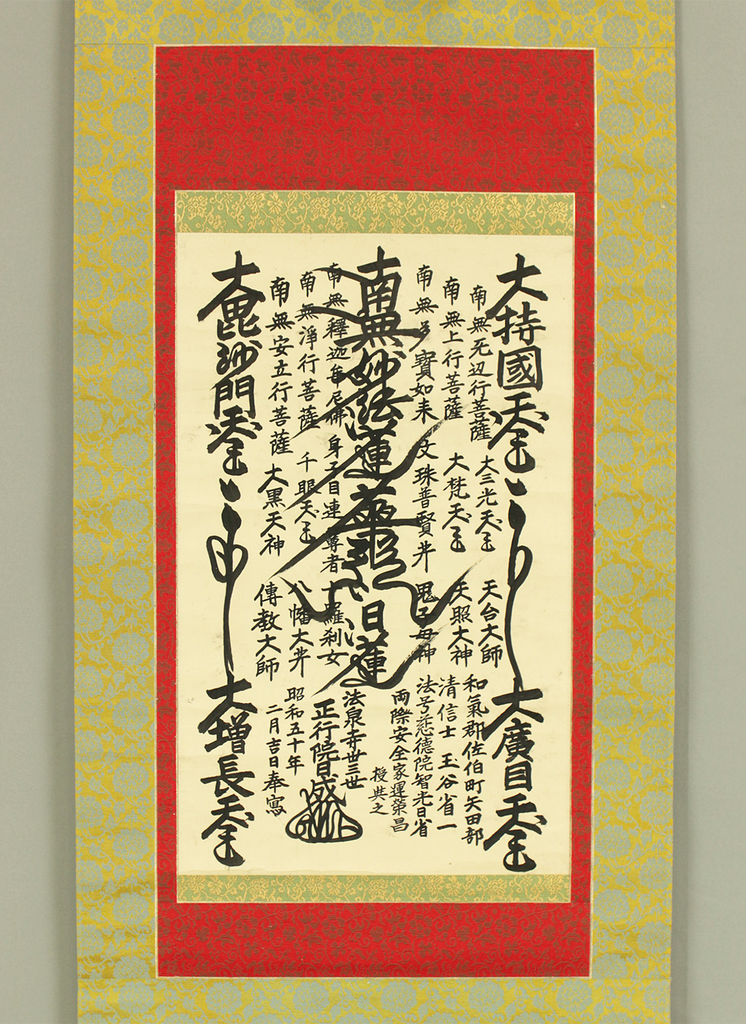 大持國天王
大廣目天王
南無无辺行菩薩
大三光天王
天台大師
南無上行菩薩
大梵天王
天照大神
南無多寶如来
文珠普賢䒑
鬼子母神
南無妙法蓮華経
日蓮
南無釋迦牟尼佛
身子目連䒑尊者
十羅刹女
南無淨行菩薩
千眼天王
八幡大䒑
南無安立行菩薩
大黒天神
傳教大師
大毘沙門天王
大増長天王
和氣郡佐伯町矢田部
清信士 玉谷省一
法号慈徳院智光日省
両際安全家運榮昌
授与之
法泉寺丗三世
正行院日成
昭和五十年
二月吉日奉寫